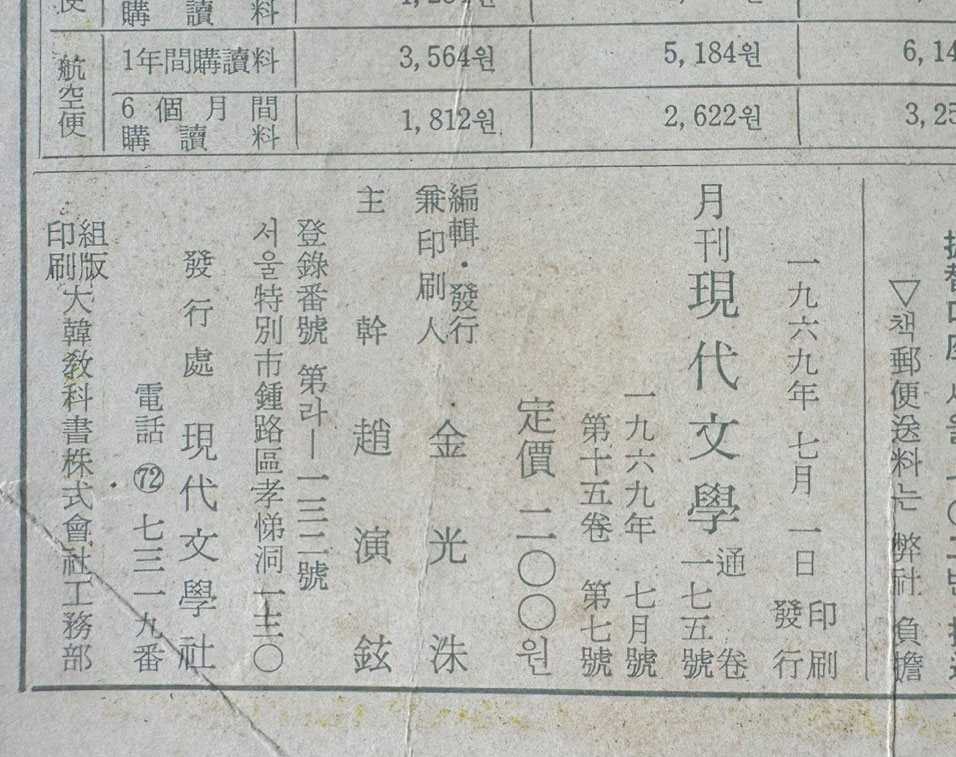 購讀料
航空便
1年間購讀料 3,564원 5,184원 6,14
6個月間購讀料 1,812원 2,622원 3,25
▽책郵便送料는 弊社 負擔
一九六九年 七月 一日 印刷 發行
月刊 現代文學 通卷 一七五號
一九六九年 七月號
第十五卷 第七號
定價 二〇〇원
編輯・發行 兼印刷人 金光洙
主幹 趙演鉉
登錄番號 第라―一三二號
서울特別市鍾路區孝悌洞
發行處 現代文學社
電話 ㉒ 七三一九番
組版 印刷 大韓敎科書株式會社工務部